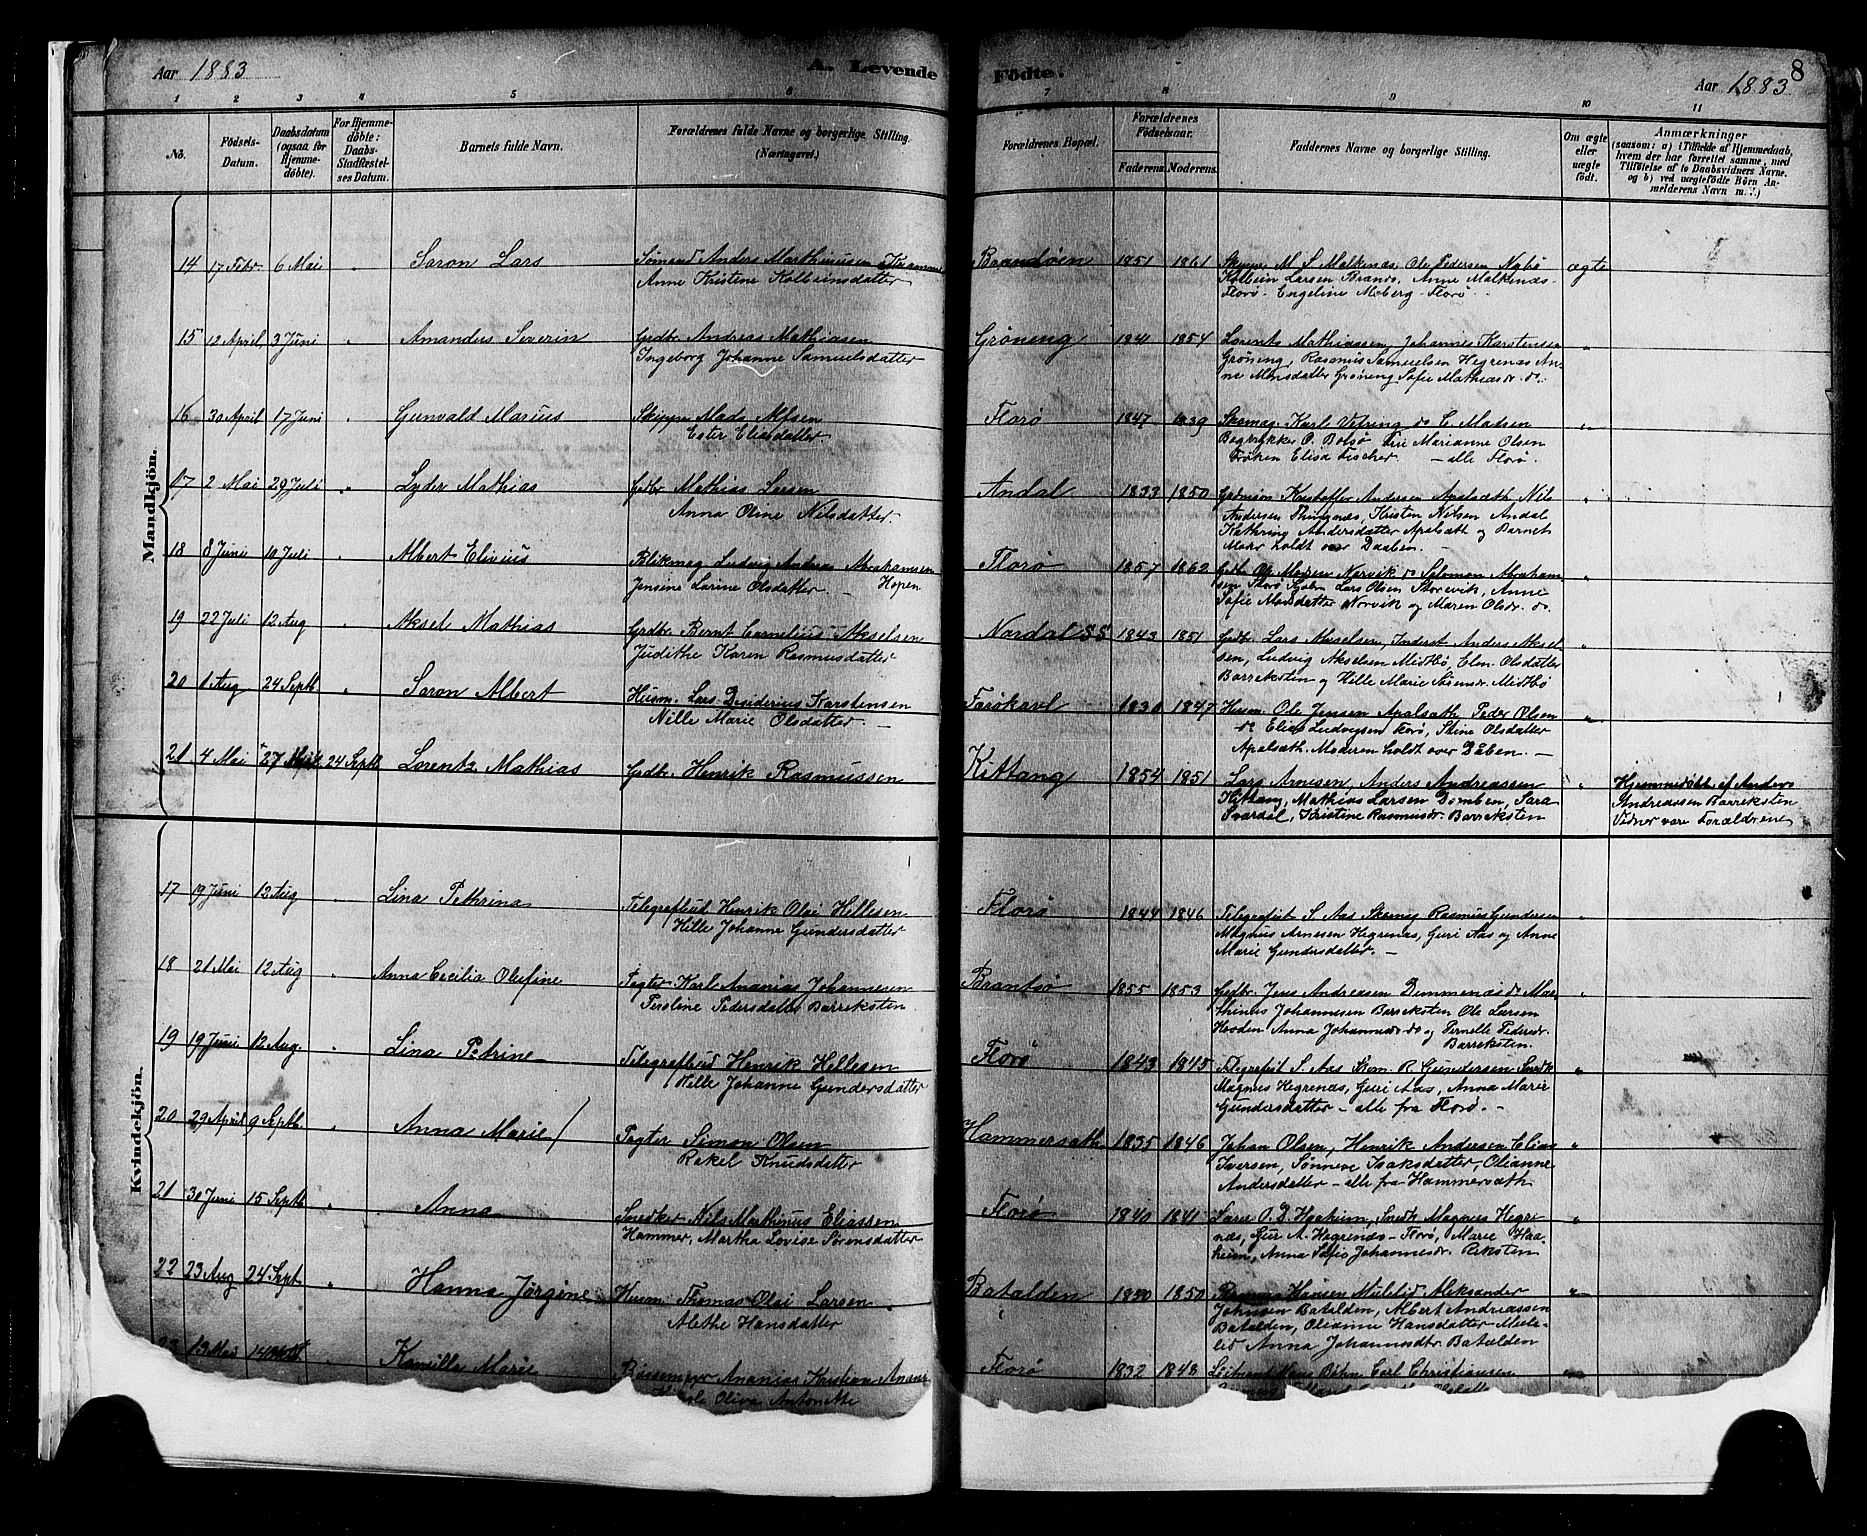 Aar 1883
A. Levende
Födte.
8
Aar 1883
1 2 3 4 5 6 7 8 9 10 11
No.
Födsels-
Datum.
Daabsdatum
(ogsaa for
Hjemme-
döbte).
For Hjemme-
döbte:
Daabs-
Stadfæstel-
ses Datum.
Barnets fulde Navn.
Forældrenes fulde Navne og borgerlige Stilling.
(Næringsvei.)
Forældrenes Bopæl.
Forældrenes
Födselsaar.
Faderens. Moderens.
Faddernes Navne og borgerlige Stilling.
Om ægte
eller
uægte
födt.
Anmærkninger
(saasom: a) i Tilfælde af Hjemmedaab,
hvem der har forrettet samme, med
Tilföielse af to Daabsvidners Navne.
og b) ved uægtefödte Börn An-
melderens Navn m. v.)
Mandkjön.
14 17 Febr. 6 Mai " Saron Lars Sömand Anders Marthinussen
Anne Kristine Kolbeinsdatter
Brandöen 1851 1861 M. S. Malkenæs, Ole Pedersen Nybö ægte
Kolbein Larsen Brandö, Anne Malkenæs-
Florö - Engeline Moberg - Florö
15 12 April 3 Juni " Amandus Severin Grdbr. Andreas Mathiasen
Ingeborg Johanne Samuelsdatter
Gröneng 1841 1854 Lorents Mathiassen, Johannes Karstensen "
Gröneng, Rasmus Samuelsen Hegrenæs An-
ne Monsdatter Gröneng Sofie Mathiasdr. do.
16 30 April 17 Juni " Gunvald Marius Skipper Mads Alfsen
Ester Eliasdatter
Florö 1847 1839 Skomag. Karl Vefring do E. Madsen "
Bogtrykker O. Bolsö Fru Marianne Olsen
Fröken Elisa Fischer - alle Florö.
17 2 Mai 29 Juli " Lyder Mathias Grdbr Mathias Larsen
Anna Oline Nilsdatter.
Andal 1833 1850 Kristoffer Andersen Apalsæth Nils "
Andersen Thingnæs, Kristen Nilsen Andal
Kathrina Andersdatter Apalsæth og Barnets
Moder holdt over Daaben.
18 8 Juni 10 Juli " Albert Elivius Blikmag. Ludvig Andreas Abrahamsen
Jensine Larine Olsdatter. - Hopen
Florö 1857 1862 Grdb Ole Madsen Norvik do Salomon Abraham- "
sen Storö Lars Olsen Storevik, Anne
Sofie Monsdatter Norvik og Maren Olsdr. do.
19 22 Juli 12 Aug " Aksel Mathias Grdbr. Bernt Cornelius Akselsen
Judithe Karen Rasmusdatter
Nordal SS 1843 1851 Grdbr Lars Akselsen, Indrest Anders Aksel- "
sen, Ludvig Akselsen Midtbö, Elen Olsdatter
Barreksten og Hille Marie Sörensdr. Midtbö
20 1 Aug 24 Septb " Saron Albert Husm. Lars Desiderius Karstensen
Nille Marie Olsdatter. -
Farökavl 1830 1847 Husm. Ole Jensen Apalsæth Peder Olsen "
do Elias Ludvigsen Stine Olsdatter
Apalsæth. Moderen holdt over Daben. -
21 4 Mai 27 24 Septb Lorentz Mathias Grdbr. Henrik Rasmussen
Kittang 1854 1851 Lars Arnesen, Anders Andreassen "
Kittang, Mathias Larsen Domben, Sara
Svardal, Kristine Rasmusdr. Barreksten
Hjemmedöbt af Anders
Andreassen Barreksten
Vidner vare Forældrene
Kvindekjön.
17 19 Juni 12 Aug " Lina Pethrina Telegrafbud Henrik Olai Hillesen
Hille Johanne Gundersdatter
Florö 1844 1846 Telegrafist S. Aas Skomag Rasmus Gundersen "
Magnus Arnesen Hegrenæs, Guri Aas og Anne
Marie Gundersdatter. -
18 21 Mai 12 Aug " Anna Cecilia Olufine Pagter Karl Ananias Johannesen
Peroline Pedersdatter Barreksten
Brandsö 1855 1853 Grdbr. Jens Andreasen Dimmenæs do Mar- "
thinus Johannesen Barreksten Ole Larsen
Hovden Anna Johannesdr do og Pernelle Pedersdr.
Barreksten.
19 19 Juni 12 Aug. " Lina Petrine Telegrafbud Henrik Hillesen
Hille Johanne Gundersdatter
Florö 1843 1845 Telegrafist S. Aas Skom. R. Gundersen Snedk "
Magnus Hegrenæs, Guri Aas, Anna Marie
Gundersdatter - alle fra Florö. -
20 29 April 9 Septb. " Anna Marie / Pagter Simon Olsen
Rakel Knudsdatter
Hammersæth 1835 1846 Johan Olsen, Henrik Andersen Elias "
Iversen, Sönneve Isaksdatter, Olianne
Andersdatter - alle fra Hammersæth
21 30 Juni 15 Septb " Anna Snedker Nils Mathinus Eliassen
Hammer, Martha Lovise Sörensdatter
Florö 1840 1841 O. D. Haaheim, Snedk Magnes Hegre- "
næs, Guri A. Hegrenæs - Florö, Marie Haa-
heim, Anna Sofie Johannesdr. Reksten
22 23 Aug 24 Sept " Hanna Jörgine Husm. Thomas Olai Larsen
Alethe Hansdatter
Batalden 1850 1850 Rasmus Hansen Mulelid Aleksander "
Johnsen Batalden, Albert Andreassen
Batalden, Olianne Hansdatter Mule-
lid Anna Johannesdtr. Batalden
23 13 Mai 14 " Kamilla Marie Ananias Kristian
Oliva Antonette
Florö 1832 1843 Löitnant Hans Böhn Carl Christiansen